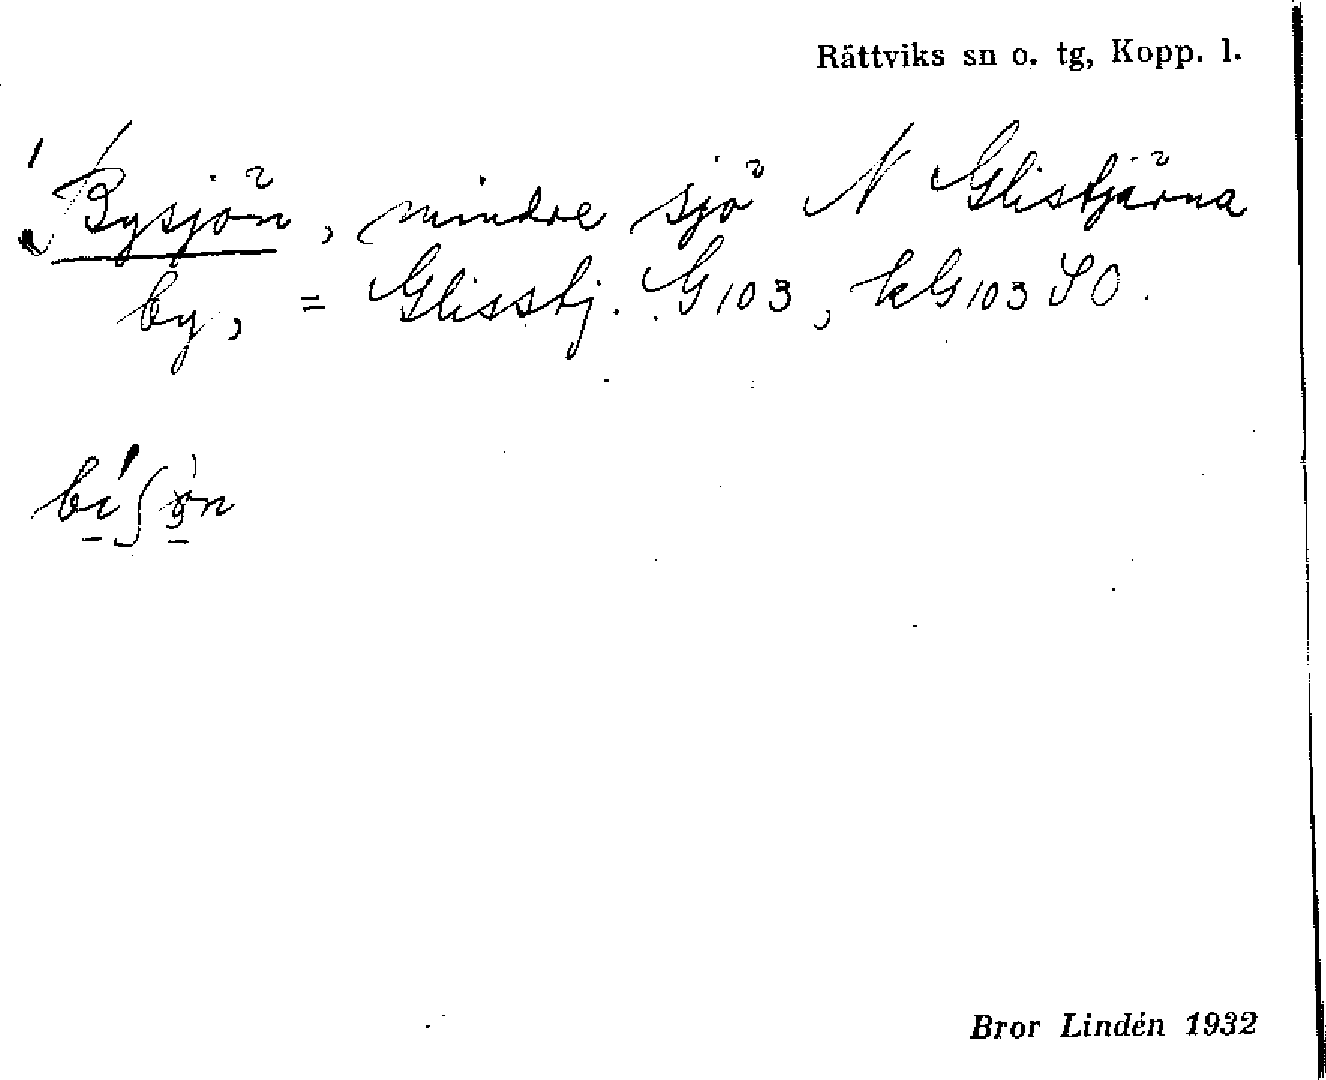 Rättviks sn o. tg, Kopp. l.
Bysjön, mindre sjö N Glistjärna
by, = Glisstj. G103, kG103 SO.
bi̠ʃø̠n
Bror Lindén 1932